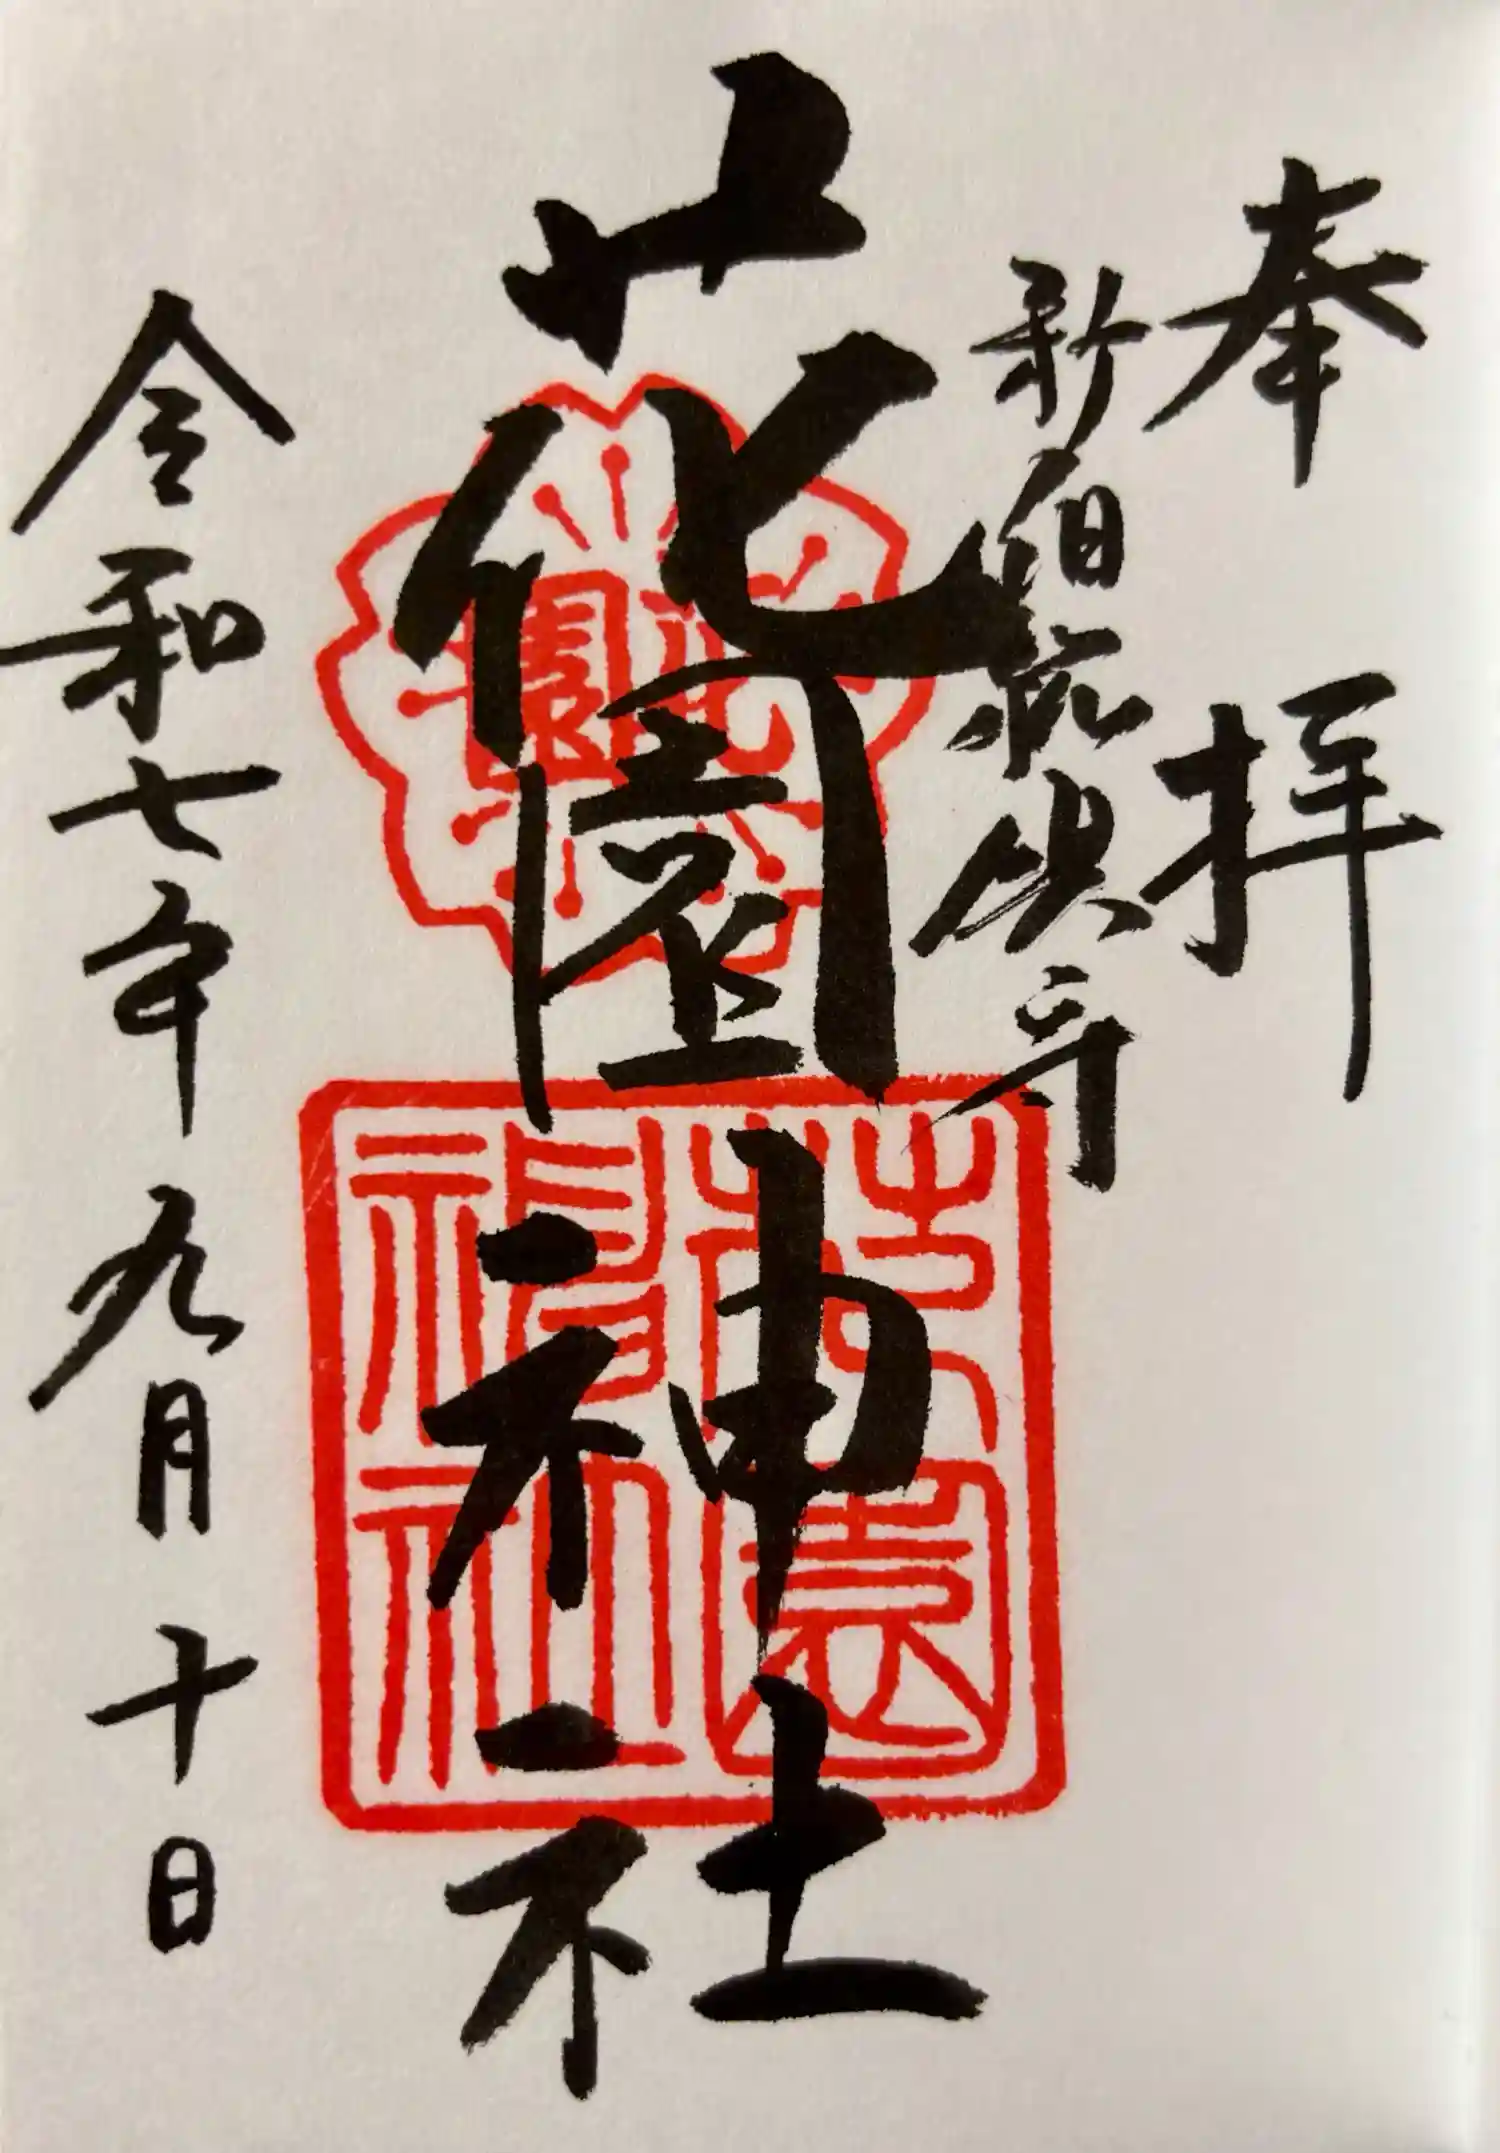 奉拝
新宿総鎮守
花園神社
花園
花園
神社
令和七年九月十日